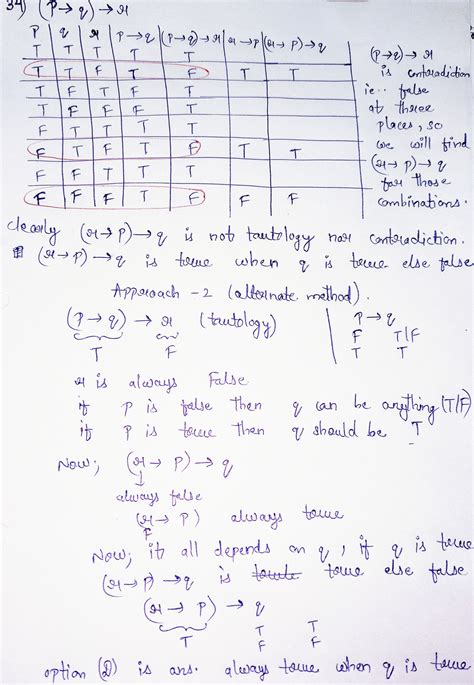 34) (p→q)→r
p q r p→q (p→q)→r r→p (r→p)→q
T T T T T
T T F T F T T
T F T F T
T F F F T
F T T T T
F T F T F T T
F F T T T
F F F T F F F
(p→q)→r
is contradiction
ie.. false
at three
places, so
we will find
(r→p)→q
for those
combinations.
clearly (r→p)→q is not tautology nor contradiction.
(r→p)→q is true when q is true else false
Approach -2 (alternate method).
(p→q)→r (tautology)
T F
p→q
F T/F
T T
r is always False
if p is false then q can be anything (T/F)
if p is true then q should be T
Now; (r→p)→q
always false
(r→p) always true
F
Now; it all depends on q, if q is true
(r→p)→q is true else false
(r→p)→q
T T T
F F
option (D) is ans. always true when q is true